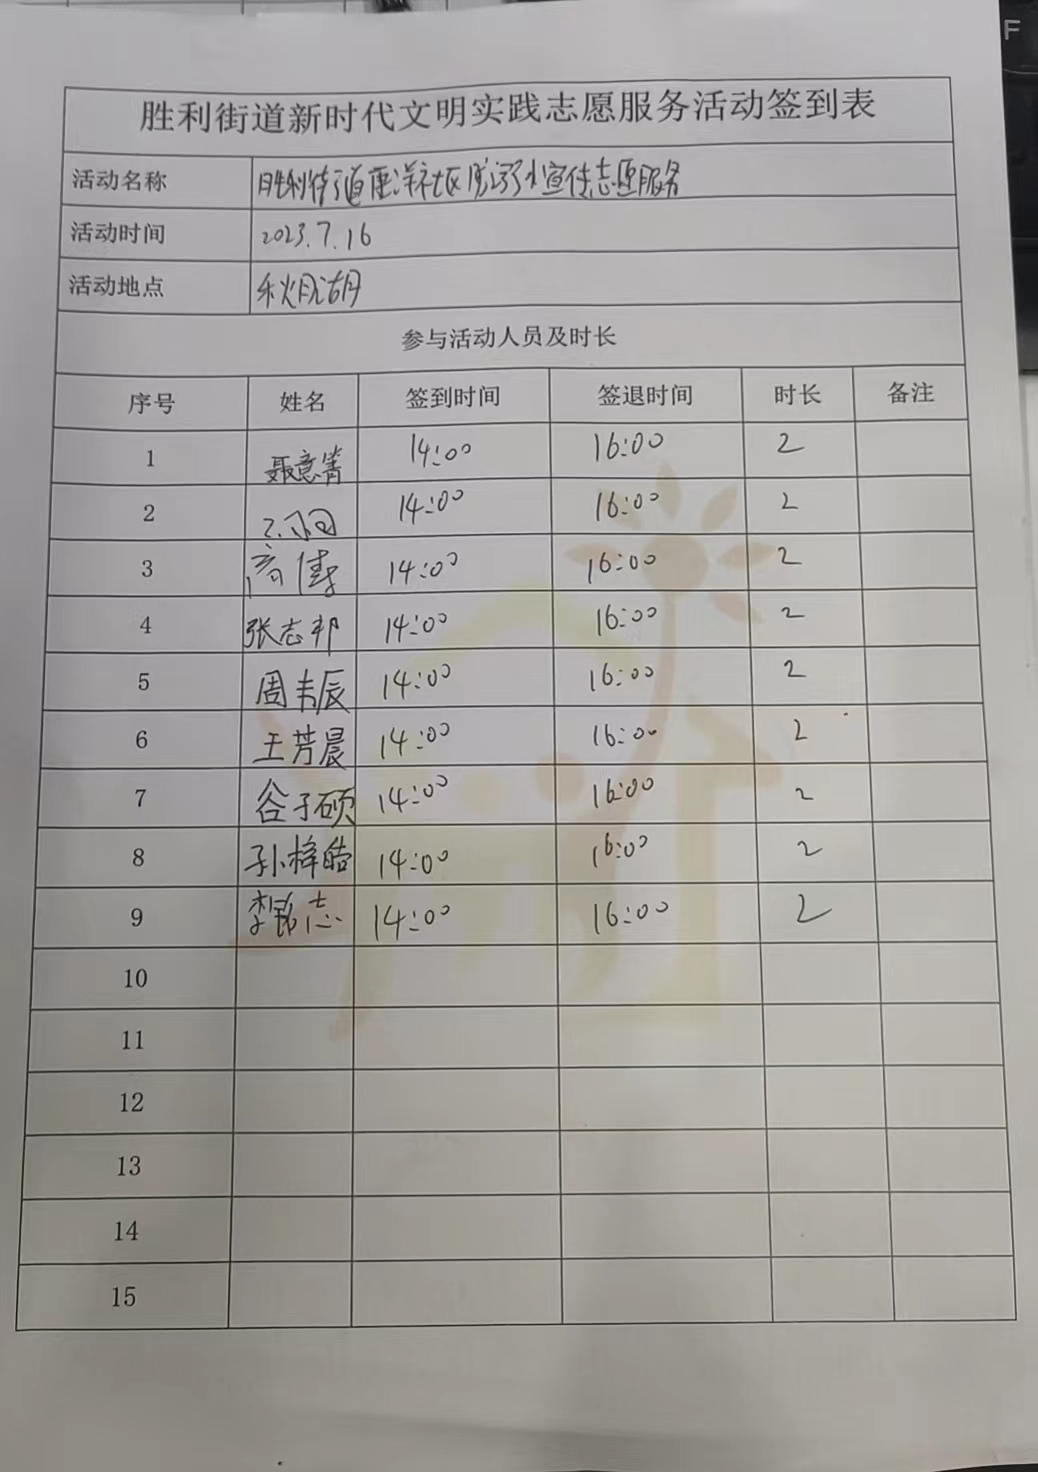 F
胜利街道新时代文明实践志愿服务活动签到表
活动名称 胜利街道西洋社区防溺水宣传志愿服务
活动时间 2023.7.16
活动地点 秋月湖
参与活动人员及时长
序号 姓名 签到时间 签退时间 时长 备注
1 聂意箐 14:00 16:00 2
2 14:00 16:00 2
3 高倩 14:00 16:00 2
4 张志邦 14:00 16:00 2
5 周韦辰 14:00 16:00 2
6 王芳晨 14:00 16:00 2
7 谷子硕 14:00 16:00 2
8 孙梓皓 14:00 16:00 2
9 李铭志 14:00 16:00 2
10
11
12
13
14
15